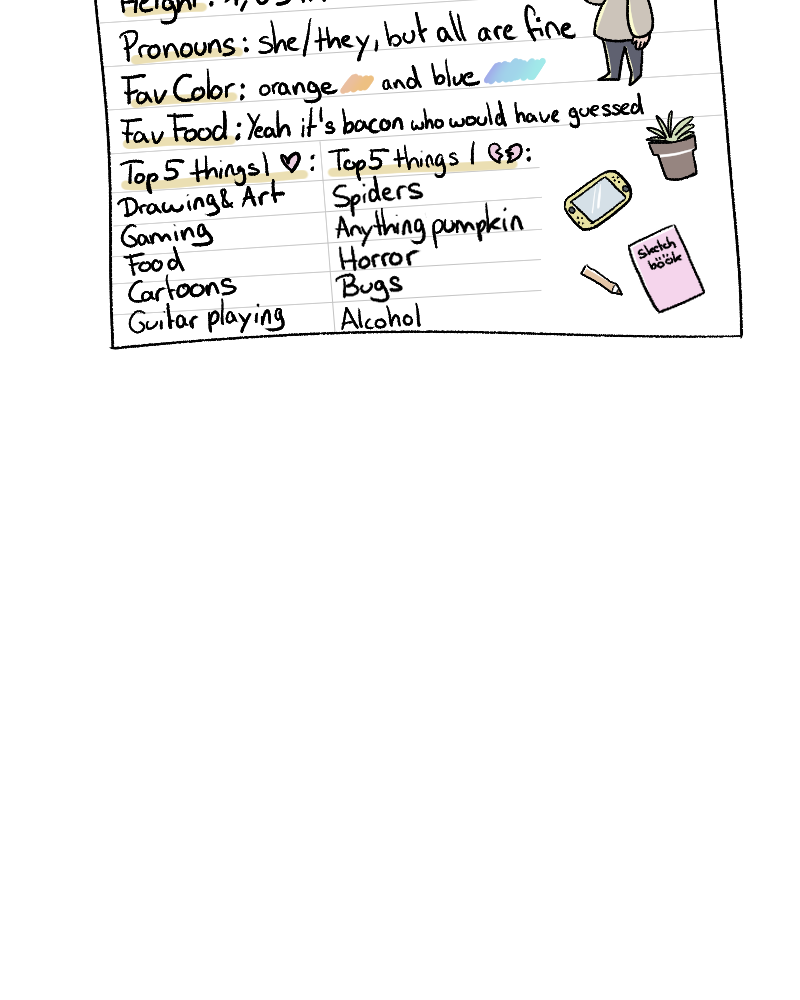 Pronouns: she/they, but all are fine
Fav Color: orange and blue
Fav Food: Yeah it's bacon who would have guessed
Top 5 things I ♥: Top 5 things I 💔:
Drawing & Art Spiders
Gaming Anything pumpkin
Food Horror
Cartoons Bugs
Guitar playing Alcohol
Sketch
böök